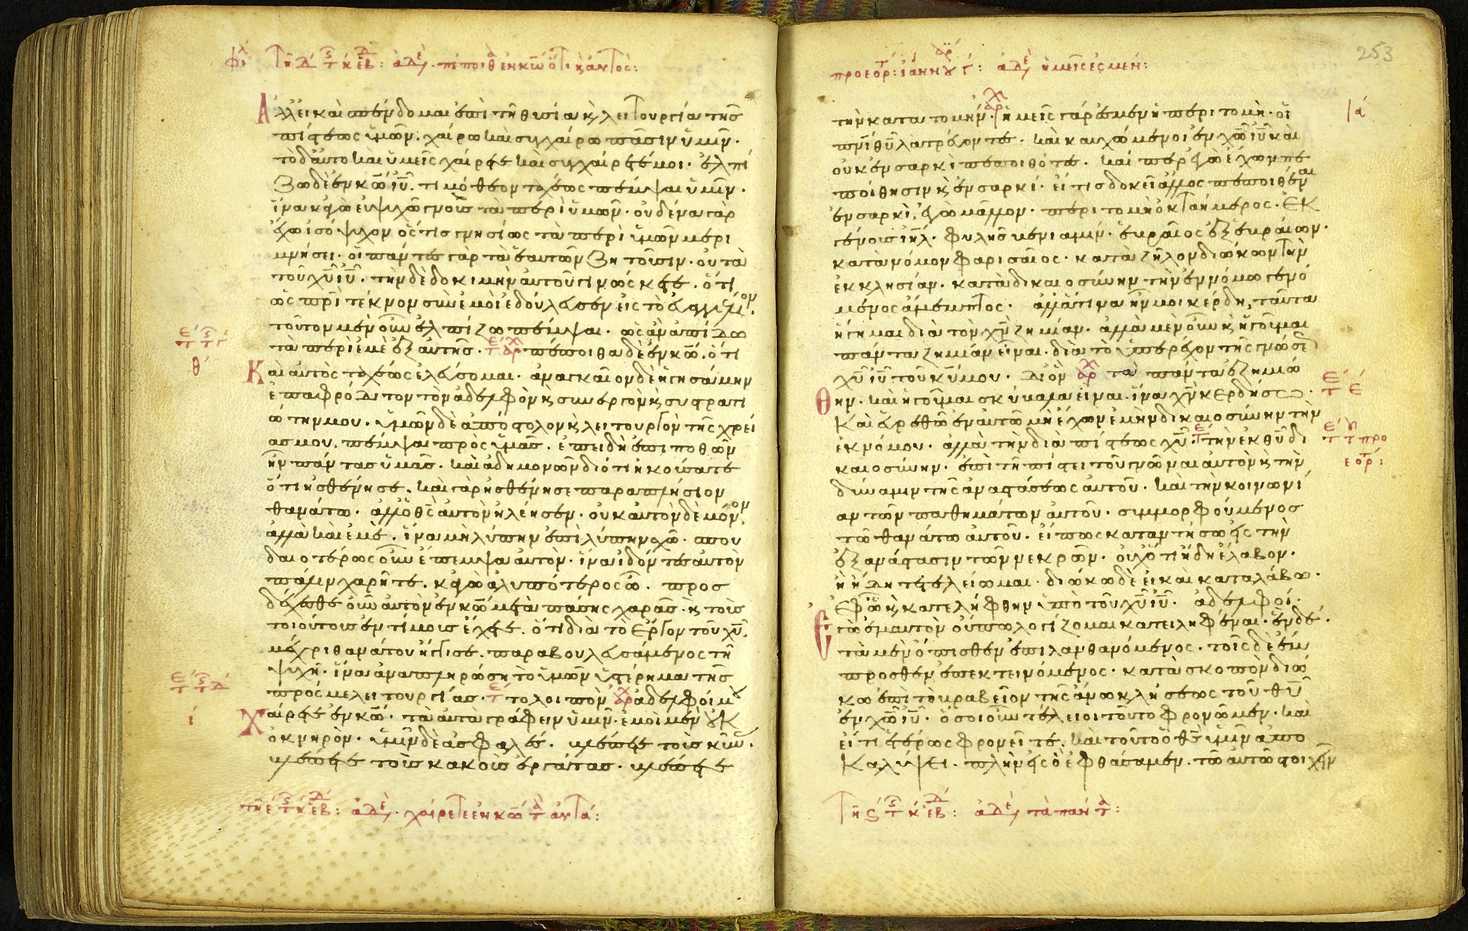 Ἀλλ' εἰ καὶ σπένδομαι ἐπὶ τῆ θυσία κ λειτουργία τῆς
πίστεως ὑμῶν· χαίρω καὶ συγχαίρω πᾶσιν ὑμῖν·
τὸ δ' αὐτὸ καὶ ὑμεῖς χαίρετε καὶ συγχαίρετέ μοι· ἐλπί
ζω δὲ ἐν κω ιυ· τιμόθεον ταχέως πέμψαι ὑμῖν·
ἵνα κἀγὼ εὐψυχῶ γνοὺς τὰ περὶ ὑμῶν· οὐδένα γὰρ
ἔχω ἰσόψυχον ὅστις γνησίως τὰ περὶ ὑμῶν μερι
μνήσει· οἱ πάντες γὰρ τὰ ἑαυτῶν ζητοῦσιν· οὐ τὰ
τοῦ χυ ιυ· τὴν δὲ δοκιμὴν αὐτοῦ γινώσκετε· ὅτι
ὡς πρι τέκνον σὺν ἐμοὶ ἐδούλευσεν εἰς τὸ εὐαγγέλιον·
τοῦτον μὲν οὖν ἐλπίζω πέμψαι· ὡς ἂν ἀπίδω
τὰ περὶ ἐμὲ ἐξ αὐτῆς· πέποιθα δὲ ἐν κω· ὅτι
Καὶ αὐτὸς ταχέως ἐλεύσομαι· ἀναγκαῖον δὲ ἡγησάμην
ἐπαφρόδιτον τὸν ἀδελφὸν κ συνεργὸν κ συστρατι
ώτην μου· ὑμῶν δὲ ἀπόστολον κ λειτουργὸν τῆς χρεί
ας μου· πέμψαι πρὸς ὑμᾶς· ἐπειδὴ ἐπιποθῶν
ἦν πάντας ὑμᾶς· καὶ ἀδημονῶν διότι ἠκούσατε
ὅτι ἠσθένησε· καὶ γὰρ ἠσθένησε παραπλήσιον
θανάτω· ἀλλ' ὁ θς αὐτὸν ἠλέησεν· οὐκ αὐτὸν δὲ μόνον·
ἀλλὰ καὶ ἐμέ· ἵνα μὴ λύπην ἐπὶ λύπην σχῶ· σπου
δαιοτέρως οὖν ἔπεμψα αὐτὸν· ἵνα ἰδόντες αὐτὸν
πάλιν χαρῆτε· κἀγὼ ἀλυπότερος ὦ· προσ
δέχεσθε οὖν αὐτὸν ἐν κω μετὰ πάσης χαρᾶς· κ τοὺς
τοιούτους ἐντίμους ἔχετε· ὅτι διὰ τὸ ἔργον τοῦ χυ
μέχρι θανάτου ἤγγισε· παραβουλευσάμενος τῆ
ψυχῆ· ἵνα ἀναπληρώση τὸ ὑμῶν ὑστέρημα τῆς
πρός με λειτουργίας· τὸ λοιπὸν ἀδελφοί μου
Χαίρετε ἐν κω· τὰ αὐτὰ γράφειν ὑμῖν· ἐμοὶ μὲν οὐκ
ὀκνηρὸν· ὑμῖν δὲ ἀσφαλές· βλέπετε τοὺς κύνας·
βλέπετε τοὺς κακοὺς ἐργάτας· βλέπετε
253
τὴν κατατομήν· ἡμεῖς γάρ ἐσμεν ἡ περιτομή· οἱ
πνι θυ λατρεύοντες· καὶ καυχώμενοι ἐν χω ιυ καὶ
οὐκ ἐν σαρκὶ πεποιθότες· καίπερ ἐγὼ ἔχων πε
ποίθησιν κ ἐν σαρκί· εἴ τις δοκεῖ ἄλλος πεποιθέναι
ἐν σαρκὶ, ἐγὼ μᾶλλον· περιτομὴ ὀκταήμερος· ἐκ
γένους ιηλ· φυλῆς βενιαμιν· ἑβραῖος ἐξ ἑβραίων·
κατὰ νόμον φαρισαῖος· κατὰ ζῆλον διώκων τὴν
ἐκκλησίαν· κατὰ δικαιοσύνην τὴν ἐν νόμω γενό
μενος ἄμεμπτος· ἀλλ' ἅτινα ἦν μοι κέρδη, ταῦτα
ἥγημαι διὰ τὸν χν ζημίαν· ἀλλὰ μὲν οὖν κ ἡγοῦμαι
πάντα ζημίαν εἶναι· διὰ τὸ ὑπερέχον τῆς γνώσεως
χυ ιυ τοῦ κυ μου· δι' ὃν τὰ πάντα ἐζημιώ
θην· καὶ ἡγοῦμαι σκύβαλα εἶναι· ἵνα χν κερδήσω·
Καὶ εὑρεθῶ ἐν αὐτῶ μὴ ἔχων ἐμὴν δικαιοσύνην τὴν
ἐκ νόμου· ἀλλὰ τὴν διὰ πίστεως χυ· τὴν ἐκ θυ δι
καιοσύνην· ἐπὶ τῆ πίστει τοῦ γνῶναι αὐτὸν κ τὴν
δύναμιν τῆς ἀναστάσεως αὐτοῦ· καὶ τὴν κοινωνί
αν τῶν παθημάτων αὐτοῦ· συμμορφούμενος
τῶ θανάτω αὐτοῦ· εἴ πως καταντήσω εἰς τὴν
ἐξανάστασιν τῶν νεκρῶν· οὐχ ὅτι ἤδη ἔλαβον·
ἢ ἤδη τετελείωμαι· διώκω δὲ εἰ καὶ καταλάβω·
ἐφ' ὧ κ κατελήφθην ὑπὸ τοῦ χυ ιυ· ἀδελφοί·
Ἐγὼ ἐμαυτὸν οὔπω λογίζομαι κατειληφέναι· ἓν δέ·
τὰ μὲν ὀπίσθεν ἐπιλανθανόμενος· τοῖς δὲ ἔμ
προσθεν ἐπεκτεινόμενος· κατὰ σκοπὸν διώ
κω ἐπὶ τὸ βραβεῖον τῆς ἄνω κλήσεως τοῦ θυ
ἐν χω ιυ· ὅσοι οὖν τέλειοι τοῦτο φρονῶμεν· καὶ
εἴ τι ἑτέρως φρονεῖτε, καὶ τοῦτο ὁ θς ὑμῖν ἀπο
καλύψει· πλὴν εἰς ὃ ἐφθάσαμεν· τῶ αὐτῶ στοιχεῖν